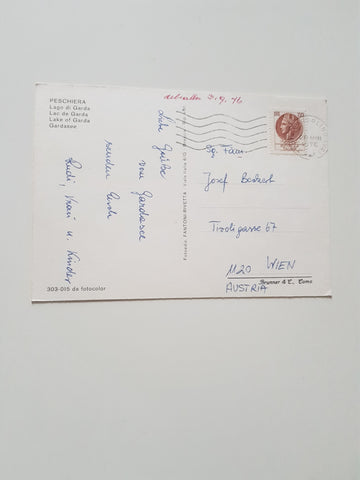 PESCHIERA
Lago di Garda
Lac de Garda
Lake of Garda
Gardasee
erhalten 3. 9. 76
Liebe Grüße
vom Gardasee
senden Euch
Rudi, u. Kinder
Josef
Tiroligasse 67
1120 WIEN
AUSTRIA
Brunner & C., Como
303-015 da fotocolor